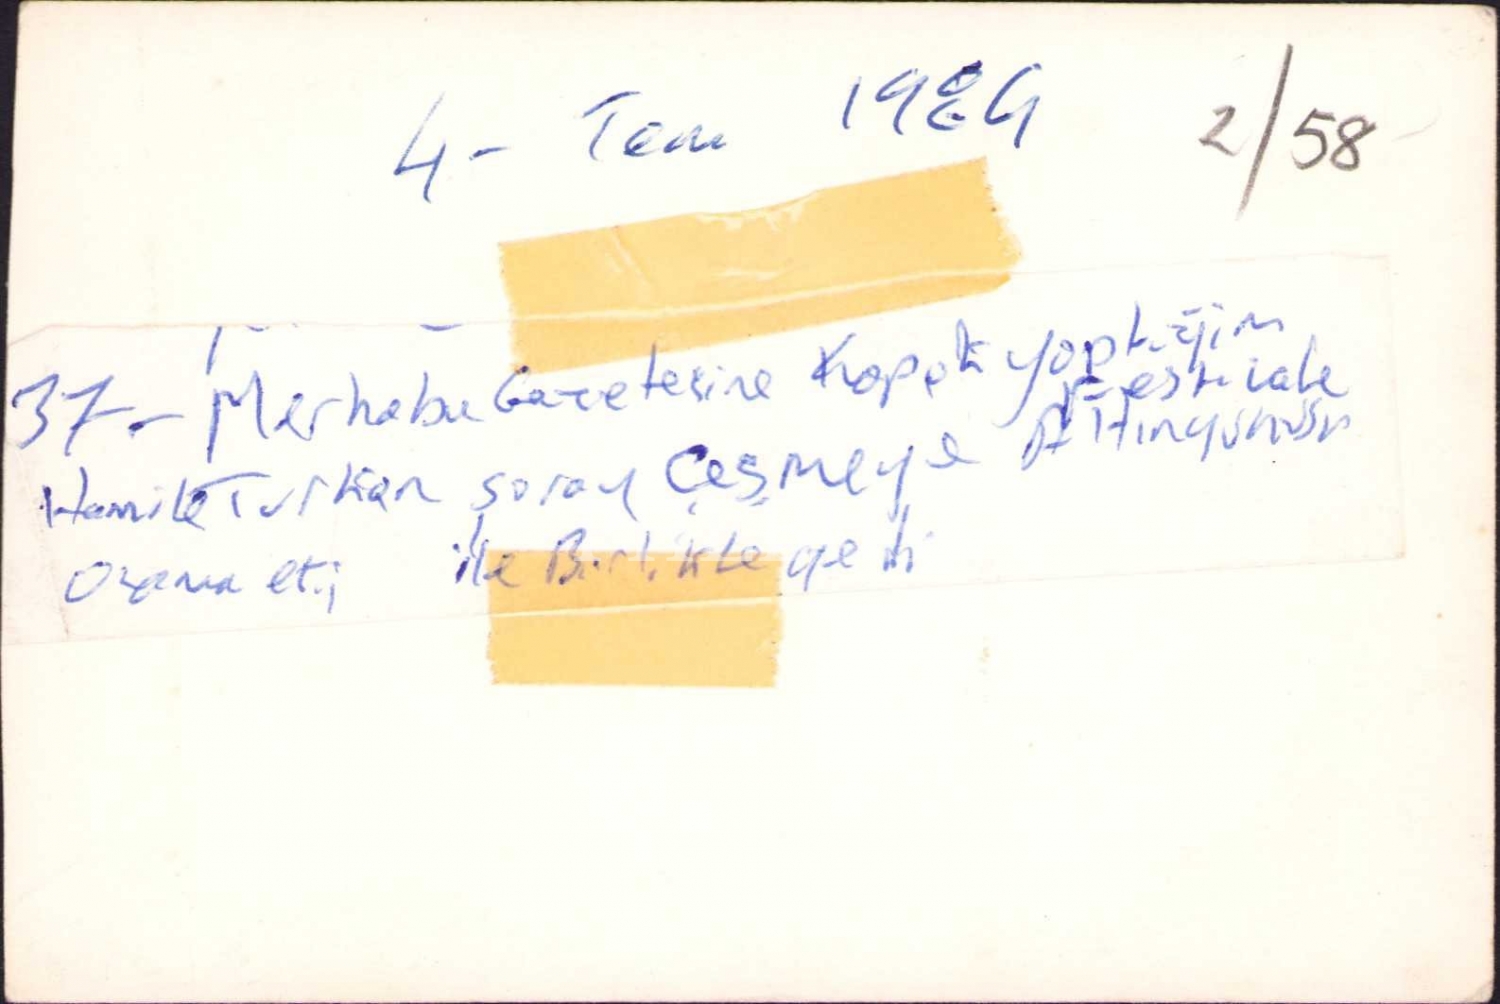 4- Tem 1984
2/58
37- Merhaba Gazetesine Kapak yaptığım
Festivale
Hamile Türkan Soray Çeşmeye Altıngünün
Ozana eti ile Birlikte geldi